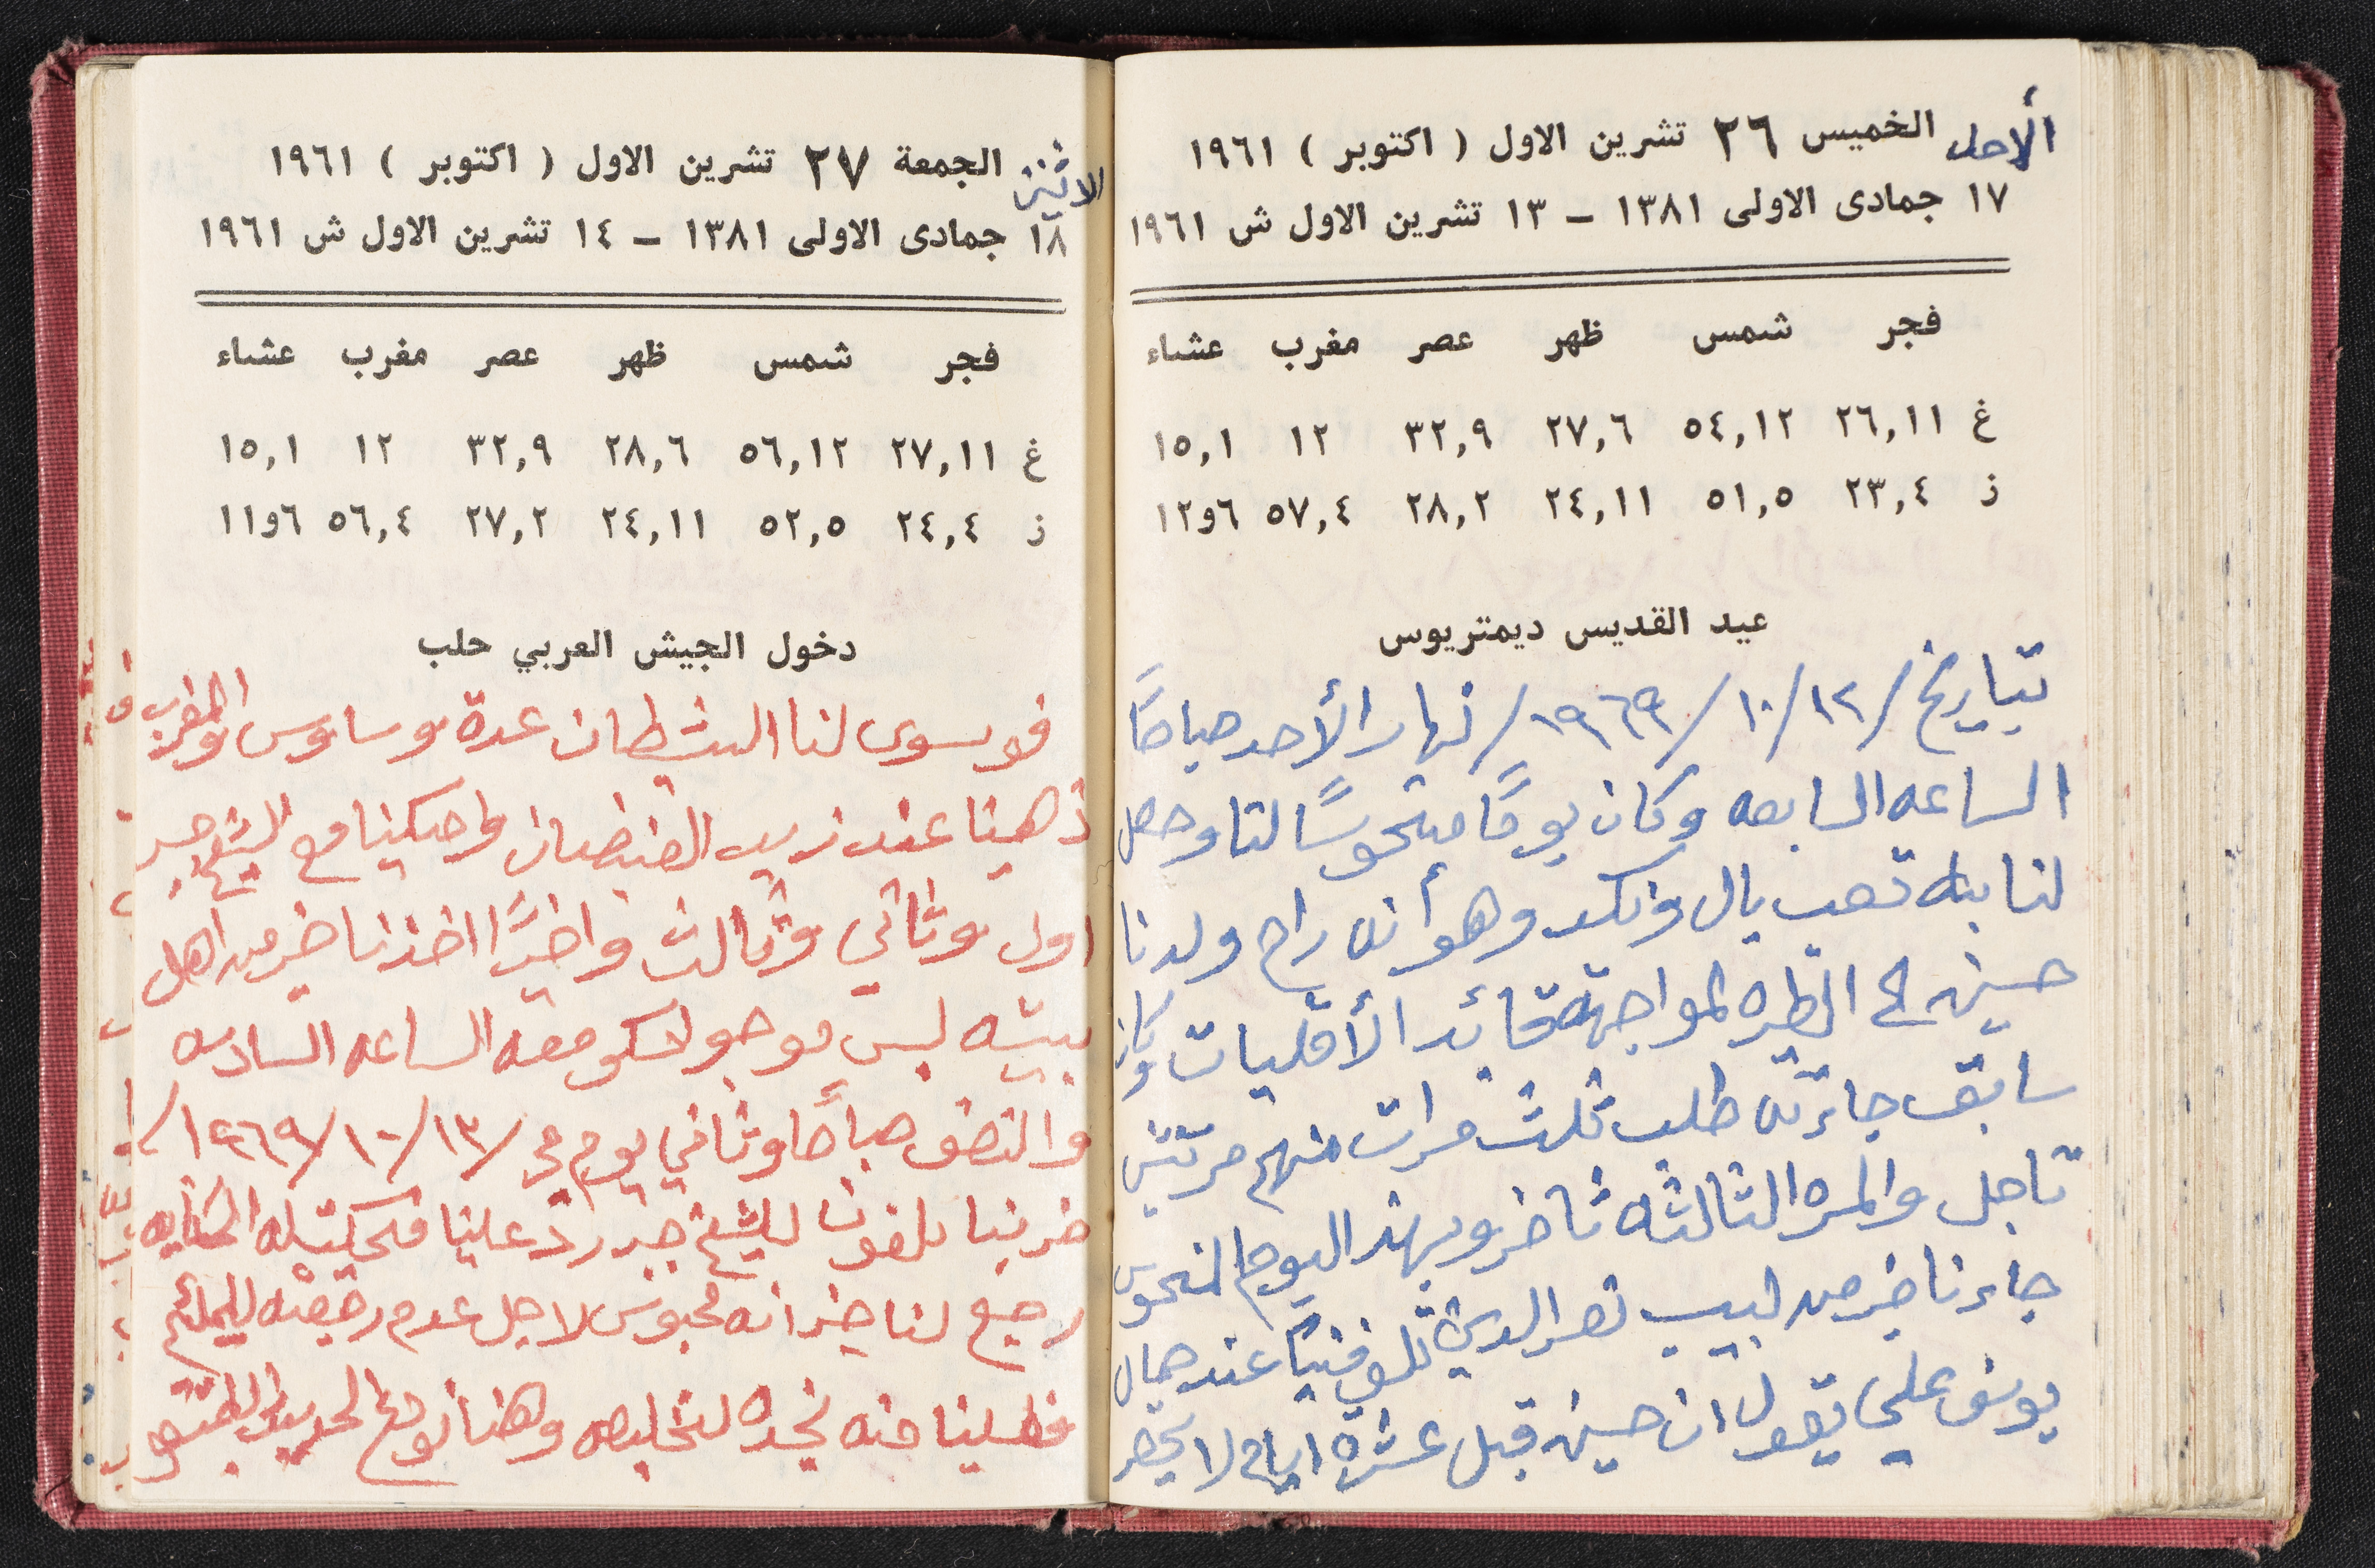 الأحد الخميس ٢٦ تشرين الاول ( اكتوبر ) ١٩٦١
١٧ جمادى الاولى ١٣٨١ – ١٣ تشرين الاول ش ١٩٦١
فجر شمس ظهر عصر مغرب عشاء
غ ٢٦,١١ ٥٤,١٢ ٢٧,٦ ٣٢,٩ ١٢ ١٥,١
ز ٢٣,٤ ٥١,٥ ٢٤,١١ ٢٨,٢ ٥٧,٤ ٦و١٢
عيد القديس ديمتريوس
بتاريخ /١٢/ ١٠/ ١٩٦٩/ نهار الأحد صباحًا
الساعه السابعه وكان يومًا منحوسًا لنا وحصل
لنا بله تعب بال ونكد وهو أنه راح ولدنا
حسين الى القطره لمواجهة قائد الأقليات وكان
سابق جائته طلب ثلث مرات منهم مرتين
تاجل والمره الثالثه تاخر وبهذا اليوم المنحوس
جاءنا خبر من لبيب نصر الدين تلفونيًا عند جمال
يوسف علي يقول ان حسين قبل عشرة ايام لا يحضر
الاثنين الجمعة ٢٧ تشرين الاول ( اكتوبر ) ١٩٦١
١٨ جمادى الاولى ١٣٨١ – ١٤ تشرين الاول ش ١٩٦١
فجر شمس ظهر عصر مغرب عشاء
غ ٢٧,١١ ٥٦,١٢ ٢٨,٦ ٣٢,٩ ١٢ ١٥,١
ز ٢٤,٤ ٥٢,٥ ٢٤,١١ ٢٧,٢ ٥٦,٤ ٦و١١
دخول الجيش العربي حلب
فوسوس لنا الشيطان عدة وساوس والمغرب
ذهبنا عند زيد الغضبان واحكينا مع الشيخ جبر
اول وثاني وثالث واخيرًا اخذنا خبر من اهل
بيته ليس موجود لنحكو معه الساعه السادسه
والنصف صباحًا وثاني يوم في /١٣/ ١٠/ ١٩٦٩/
ضربنا تلفون للشيخ جبر رد علينا فحكيتله الحكايه
رجع لنا خبر انه محبوس لاجل عدم
فطلبنا منه نجده لتخليصه وهنا نوع